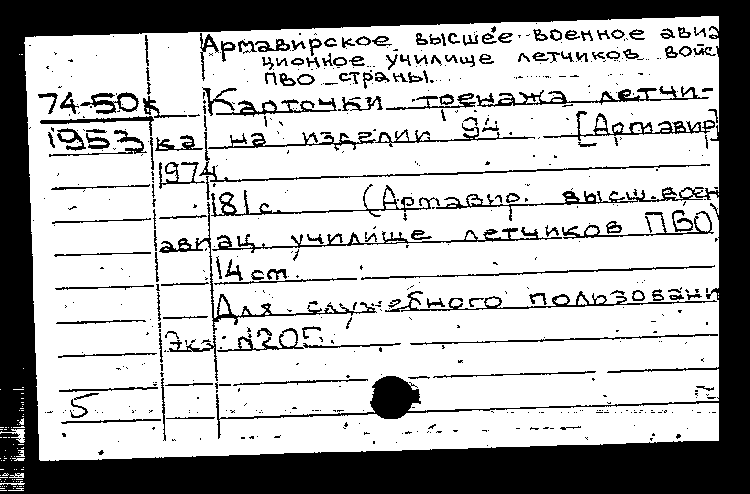 Армавирское высшее военное авиа
ционное училище летчиков войс
ПВО страны.
74-50к Карточки тренажа летчи-
1953 ка на изделии 94. [Армавир]
1974.
181 с. (Армавир. высш. воен
авиац. училище летчиков ПВО)
14 cm.
Для служебного пользовани
Экз. N205.
5